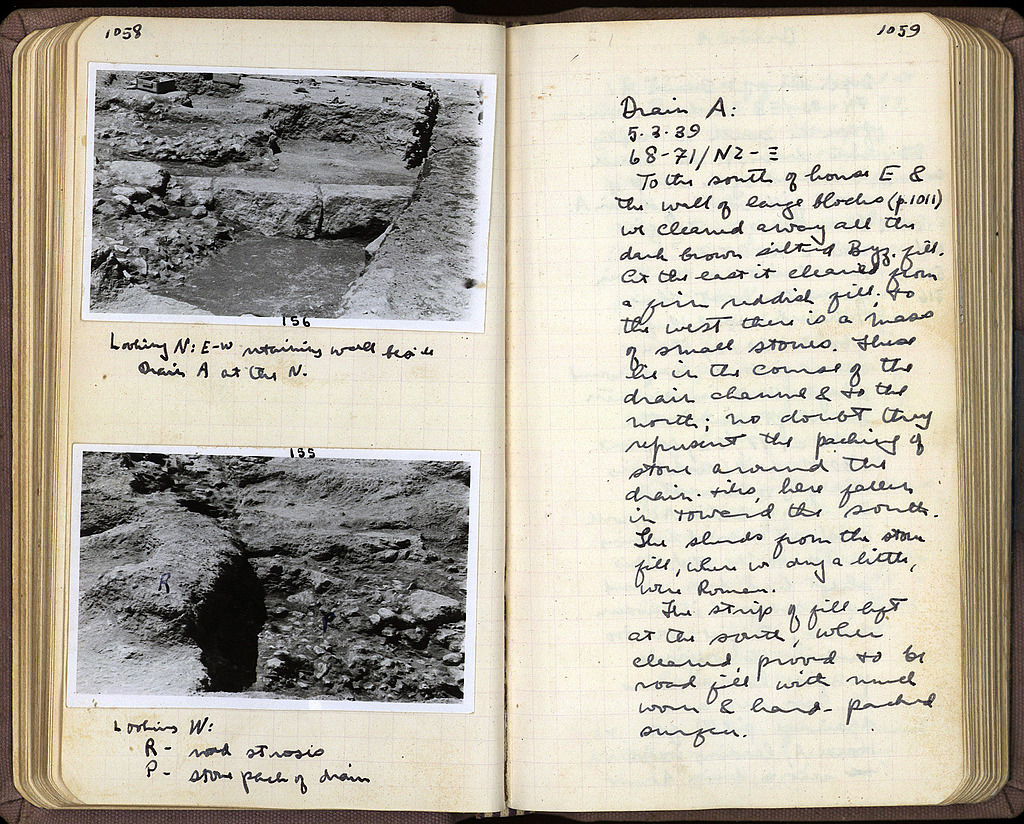 1058
156
Looking N: E-W retaining wall beside
Drain A at the N.
155
R
P
Looking W:
R - road strosis
P - stone pack of drain
1059
Drain A:
5.3.39
68-71/NZ-Ξ
To the south of house E &
the wall of large blocks (p.1011)
we cleaned away all the
dark brown silted Byz. fill.
At the east it cleaned from
a firm reddish fill, to
the west there is a mass
of small stones. These
lie in the course of the
drain channel & to the
north; no doubt they
represent the packing of
stone around the
drain-tiles, here fallen
in toward the south.
The sherds from the stone
fill, when we dug a little,
were Roman.
The strip of fill left
at the south, when
cleaned, proved to be
road fill with much
worn & hard-packed
surfaces.